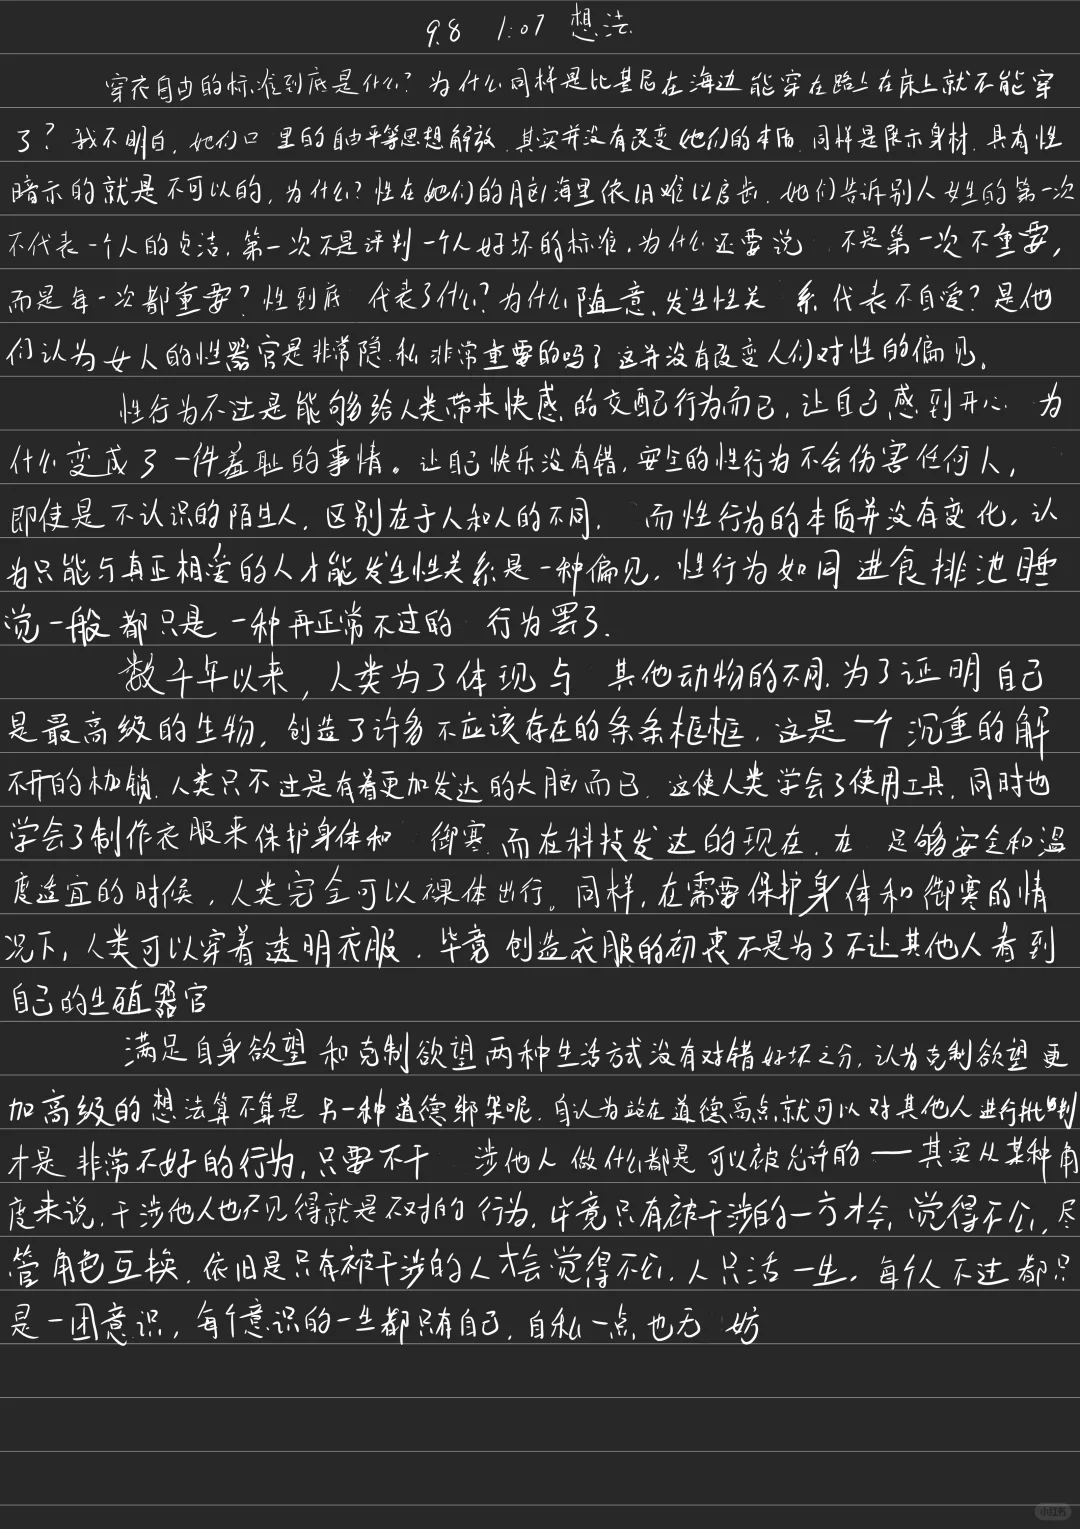 9.8 1:07 想法
穿衣自由的标准到底是什么？为什么同样是比基尼在海边能穿在路上在床上就不能穿
了？我不明白，她们口里的自由平等思想解放，其实并没有改变她们的本质，同样是展示身材，具有性
暗示的就是不可以的，为什么？性在她们的脑海里依旧难以启齿，她们告诉别人女生的第一次
不代表一个人的贞洁，第一次不是评判一个人好坏的标准，为什么还要说 不是第一次不重要，
而是每一次都重要？性到底 代表了什么？为什么随意发生性关系代表不自爱？是他
们认为女人的性器官是非常隐私非常重要的吗？这并没有改变人们对性的偏见。
性行为不过是能够给人类带来快感的交配行为而已，让自己感到开心 为
什么变成了一件羞耻的事情。让自己快乐没有错，安全的性行为不会伤害任何人，
即使是不认识的陌生人，区别在于人和人的不同， 而性行为的本质并没有变化，认
为只能与真正相爱的人才能发生性关系是一种偏见，性行为如同进食排泄睡
觉一般都只是一种再正常不过的 行为罢了.
数千年以来，人类为了体现与 其他动物的不同，为了证明自己
是最高级的生物，创造了许多不应该存在的条条框框，这是一个沉重的解
不开的枷锁，人类只不过是有着更加发达的大脑而已，这使人类学会了使用工具，同时也
学会了制作衣服来保护身体和 御寒，而在科技发达的现在，在 足够安全和温
度适宜的时候，人类完全可以裸体出行。同样，在需要保护身体和御寒的情
况下，人类可以穿着透明衣服，毕竟创造衣服的初衷不是为了不让其他人看到
自己的生殖器官
满足自身欲望和克制欲望两种生活方式没有对错好坏之分，认为克制欲望更
加高级的想法算不算是另一种道德绑架呢，自认为站在道德高点就可以对其他人进行批判
才是非常不好的行为，只要不干 涉他人做什么都是可以被允许的——其实从某种角
度来说，干涉他人也不见得就是不对的行为，毕竟只有被干涉的一方才会觉得不公，尽
管角色互换，依旧是只有被干涉的人才会觉得不公，人只活一生，每个人不过都只
是一团意识，每个意识的一生都只有自己，自私一点也无妨
小红书